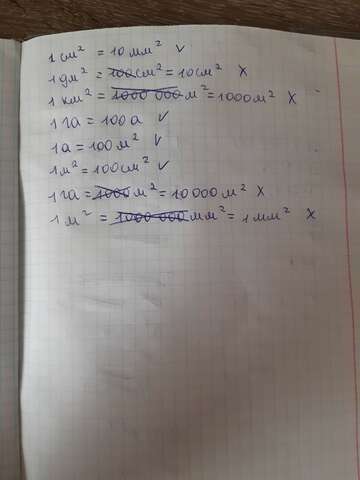 1 см² = 10 мм² ✓
1 дм² = 100 см² = 10 см² X
1 км² = 1000 000 м² = 1000 м² X
1 га = 100 а ✓
1 а = 100 м² ✓
1 м² = 100 см² ✓
1 га = 1000 м² = 10 000 м² X
1 м² = 1000 000 мм² = 1 мм² X